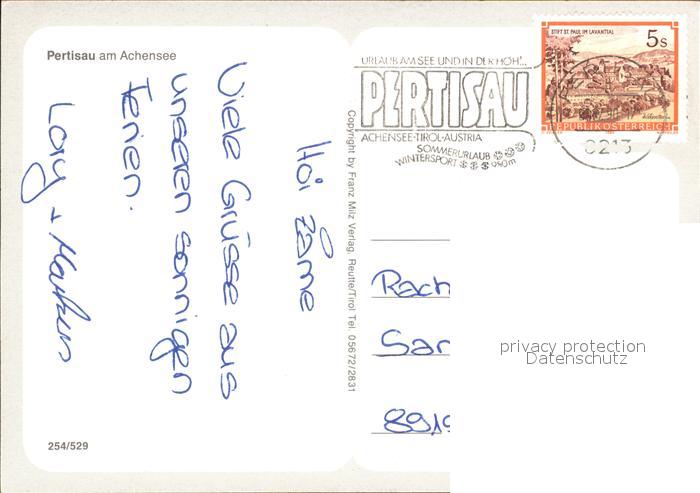 Pertisau am Achensee
Hoi zäme
Viele Grüsse aus
unseren sonnigen
Ferien.
Lory + Markus
254/529
Copyright by Franz Milz Verlag, Reutte/Tirol Tel. 05672/2831
URLAUB AM SEE UND IN DER HÖH'...
PERTISAU
ACHENSEE-TIROL-AUSTRIA
SOMMERURLAUB
WINTERSPORT 950m
STIFT ST. PAUL IM LAVANTTAL
5 S
REPUBLIK ÖSTERREICH
6213
Rach
San
8919
privacy protection
Datenschutz